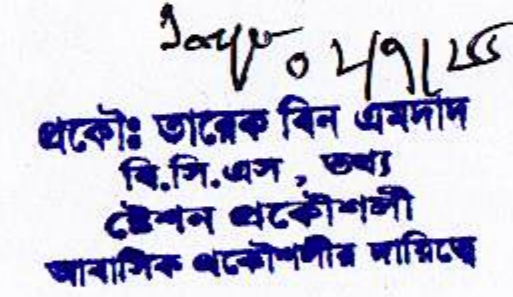 প্রকৌঃ তারেক বিন এমদাদ
বি.সি.এস , তথ্য
ষ্টেশন প্রকৌশলী
আবাসিক প্রকৌশলীর দায়িত্বে